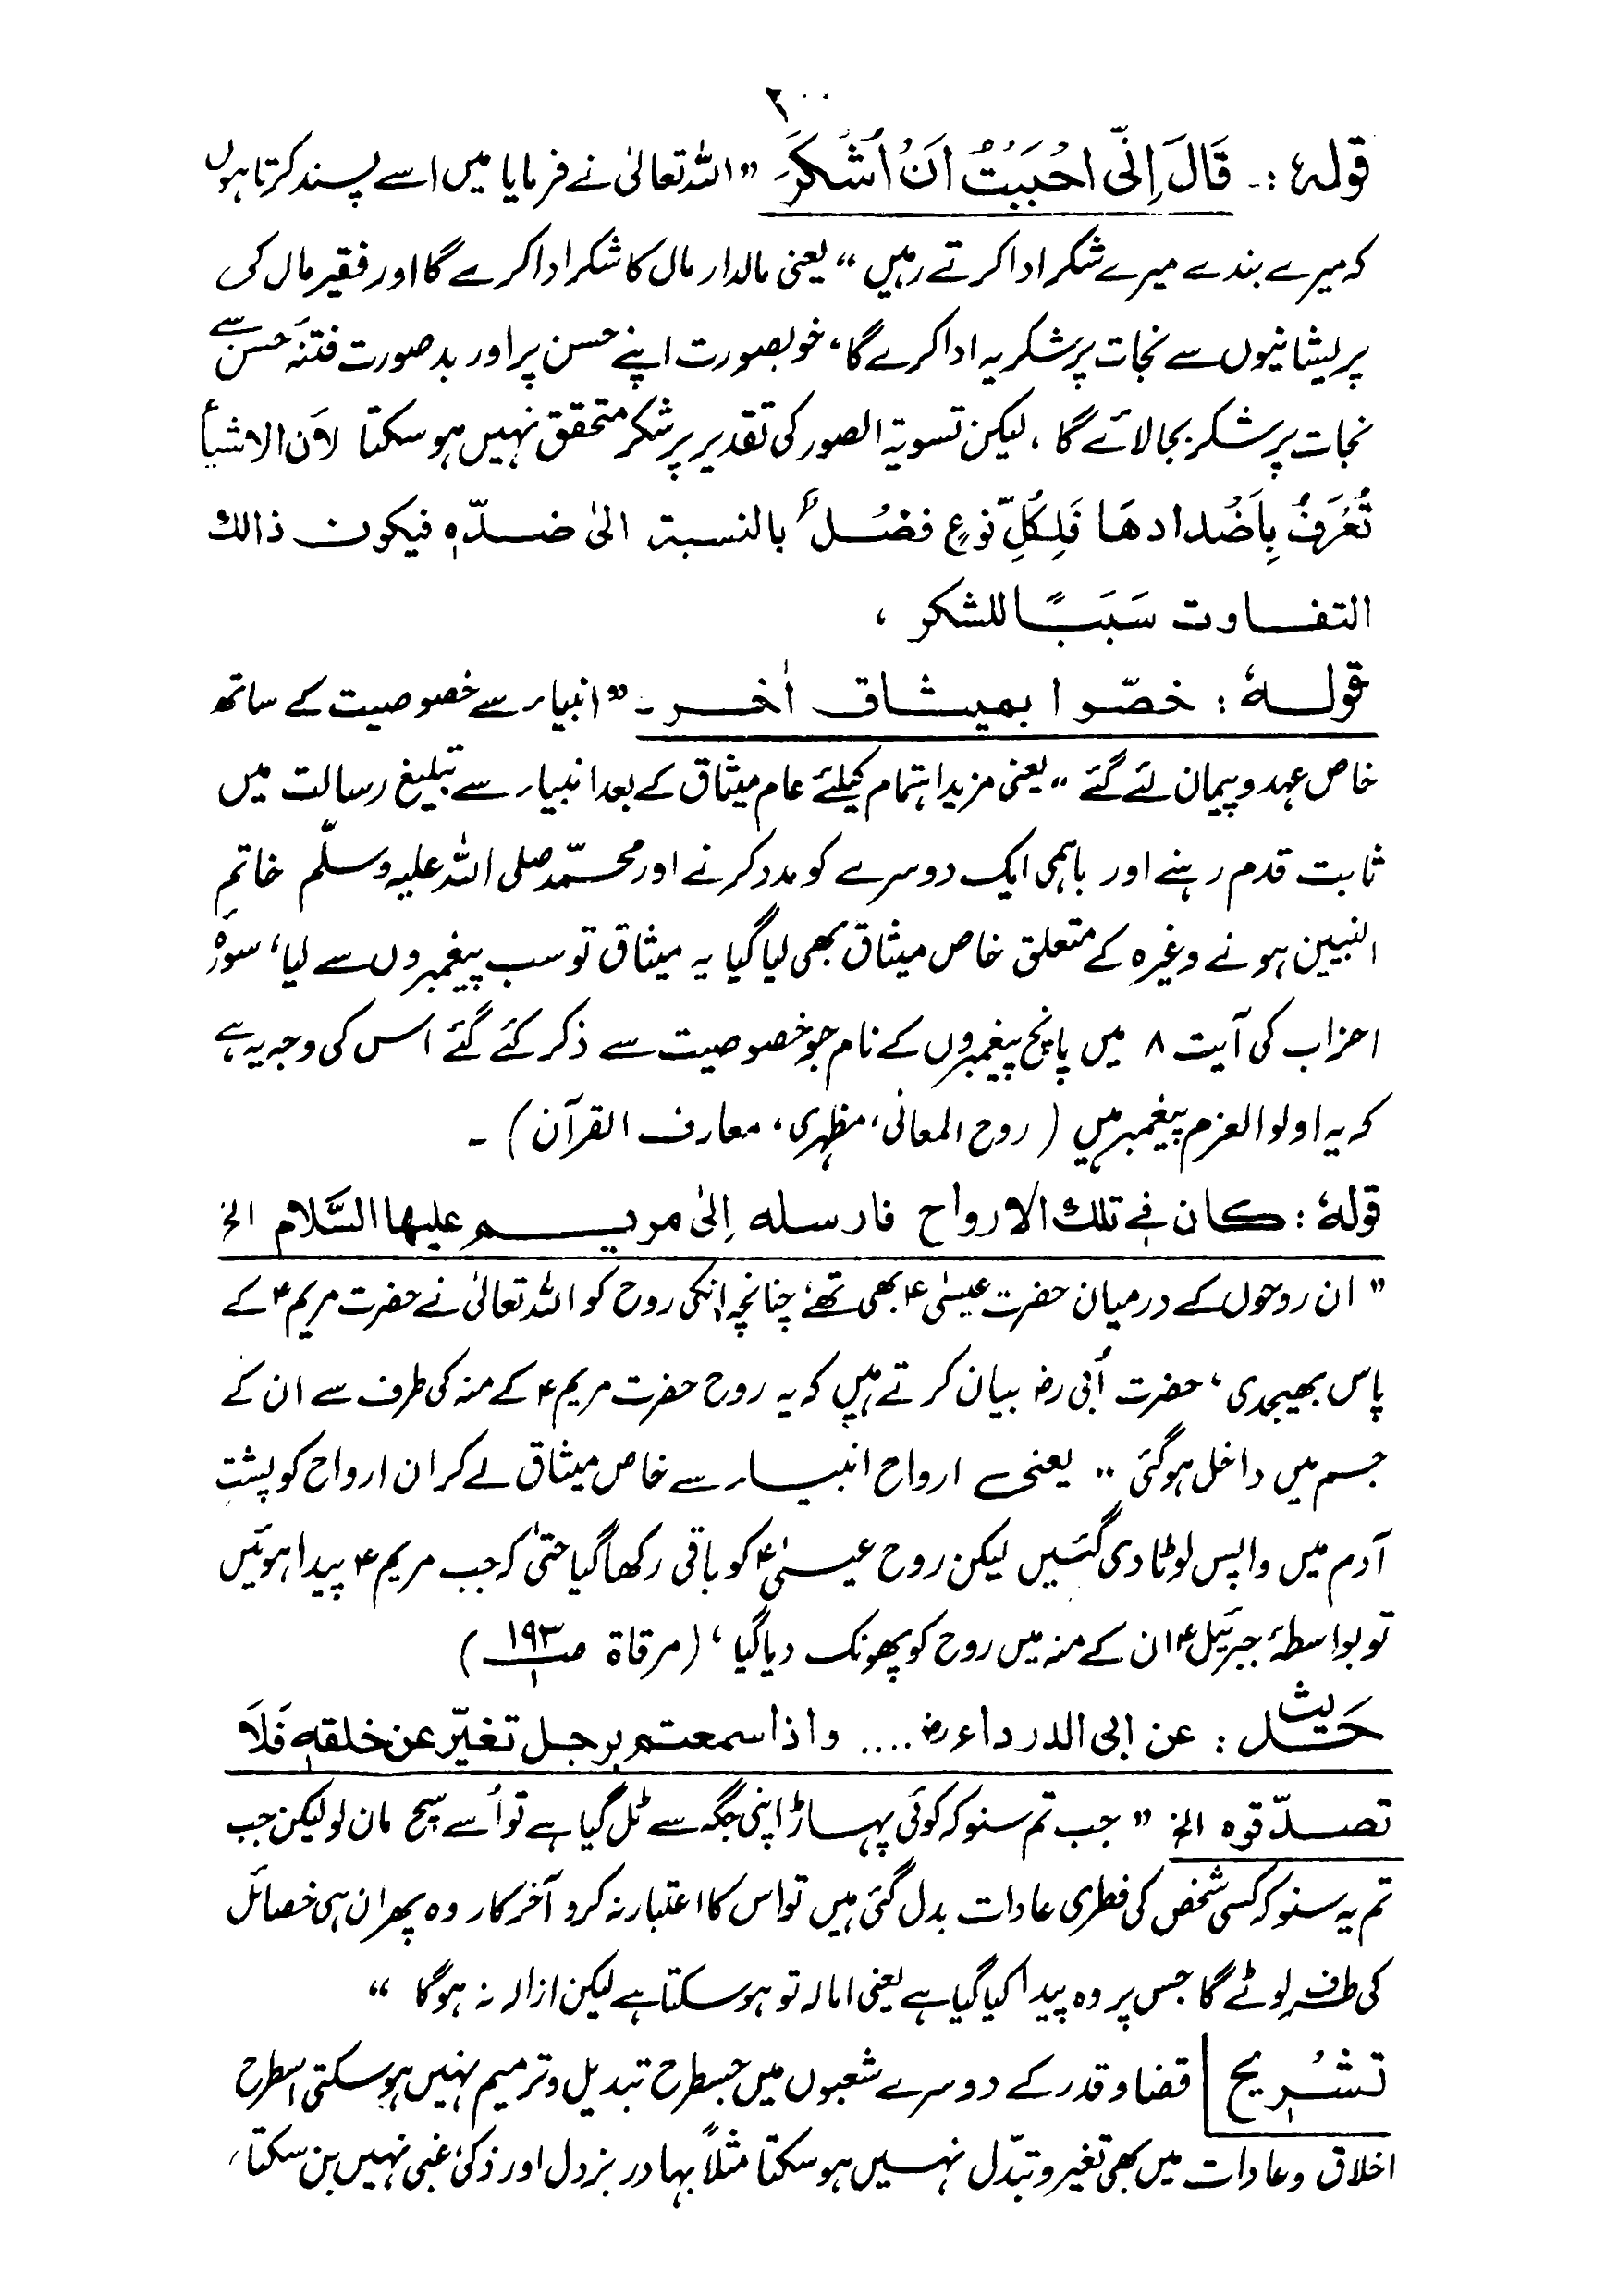 ٢٠٠
قولہٗ :۔ قَالَ اِنِّی احُبَبَتُ اَنُ اُشُکَرَ " اللہ تعالیٰ نے فرمایا میں اسے پسند کرتا ہوں
کہ میرے بندے میرے شکر ادا کرتے رہیں " یعنی مالدار مال کا شکر ادا کرے گا اور فقیر مال کی
پریشانیوں سے نجات پر شکریہ ادا کرے گا، خوبصورت اپنے حسن پر اور بد صورت فتنۂ حسن سے
نجات پر شکر بجا لائے گا ، لیکن تسویۃ الصور کی تقدیر پر شکر متحقق نہیں ہو سکتا لاَن الاشیأ
تُعُرَفُ بِاَضُدادهَا فَلِكُلِّ نوعٍ فضُلٌ بالنسبة الىٰ ضدّہٖ فیکون ذالك
التفاوت سَبَبًا للشكر ،
قولہٗ : خصّوا بمیثاق اٰخر۔ " انبیاء سے خصوصیت کے ساتھ
خاص عہد و پیمان لئے گئے " یعنی مزید اہتمام کیلئے عام میثاق کے بعد انبیاء سے تبلیغ رسالت میں
ثابت قدم رہنے اور باہمی ایک دوسرے کو مدد کرنے اور محمّد صلی اللہ علیہ وسلّم خاتم
النبیین ہونے وغیرہ کے متعلق خاص میثاق بھی لیا گیا یہ میثاق تو سب پیغمبروں سے لیا، سورۂ
احزاب کی آیت ۸ میں پانچ پیغمبروں کے نام جو خصوصیت سے ذکر کئے گئے اس کی وجہ یہ ہے
کہ یہ اولو العزم پیغمبر ہیں ( روح المعانی، مظہری، معارف القرآن ) ۔
قولہٗ : کان فی تلك الارواح فارسله اِلیٰ مریم علیها السَّلام الخ
" ان روحوں کے درمیان حضرت عیسٰی ؑ بھی تھے، چنانچہ انکی روح کو اللہ تعالیٰ نے حضرت مریم ؑ کے
پاس بھیجدی، حضرت اُبی رضؓ بیان کرتے ہیں کہ یہ روح حضرت مریم ؑ کے منہ کی طرف سے ان کے
جسم میں داخل ہو گئی " یعنی ارواح انبیاء سے خاص میثاق لے کر ان ارواح کو پشت
آدم میں واپس لوٹا دی گئیں لیکن روح عیسیٰ ؑ کو باقی رکھا گیا حتیٰ کہ جب مریم ؑ پیدا ہوئیں
تو بواسطۂ جبرئیل ؑ ان کے منہ میں روح کو پھونک دیا گیا، ( مرقاۃ صـ ۱۹۳/۱ )
حَدیث : عن ابی الدرداء رضؓ .... واذا سمعتم برجل تغیّر عن خلقهٖ فَلاَ
تصدّقوہ الخ " جب تم سنو کہ کوئی پہاڑ اپنی جگہ سے ٹل گیا ہے تو اُسے سچ مان لو لیکن جب
تم یہ سنو کہ کسی شخص کی فطری عادات بدل گئی ہیں تو اس کا اعتبار نہ کرو آخر کار وہ پھر ان ہی خصائل
کی طرف لوٹے گا جس پر وہ پیدا کیا گیا ہے یعنی امالہ تو ہو سکتا ہے لیکن ازالہ نہ ہوگا "
تشُریح | قضا و قدر کے دوسرے شعبوں میں جسطرح تبدیل و ترمیم نہیں ہو سکتی اسطرح
اخلاق و عادات میں بھی تغیر و تبدّل نہیں ہو سکتا مثلاً بہادر بزدل اور ذکی غبی نہیں بن سکتا،